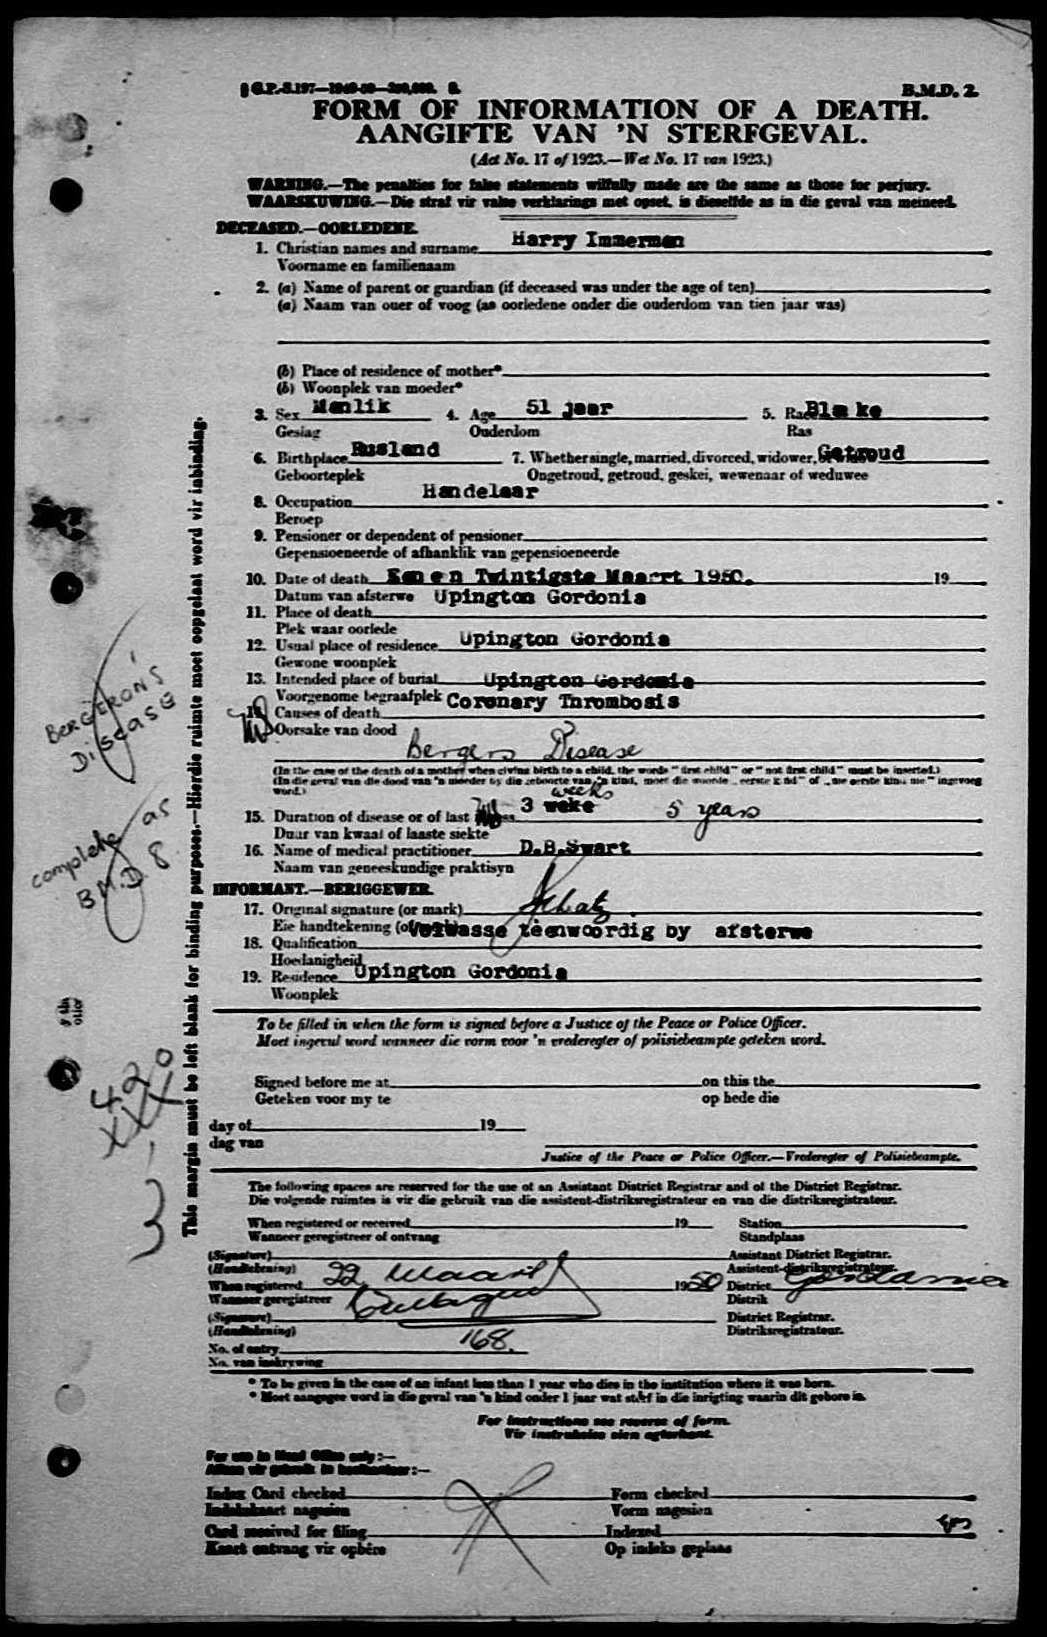 G.P.-S.197—1949-50—200,000. S.
B.M.D. 2.
FORM OF INFORMATION OF A DEATH.
AANGIFTE VAN 'N STERFGEVAL.
(Act No. 17 of 1923.—Wet No. 17 van 1923.)
WARNING.—The penalties for false statements wilfully made are the same as those for perjury.
WAARSKUWING.—Die straf vir valse verklarings met opset, is dieselfde as in die geval van meineed.
DECEASED.—OORLEDENE.
1. Christian names and surname Harry Immerman
Voorname en familienaam
2. (a) Name of parent or guardian (if deceased was under the age of ten)
(a) Naam van ouer of voog (as oorledene onder die ouderdom van tien jaar was)
(b) Place of residence of mother*
(b) Woonplek van moeder*
3. Sex Manlik 4. Age 51 jaar 5. Race Blanke
Geslag Ouderdom Ras
6. Birthplace Rusland 7. Whether single, married, divorced, widower, Getroud
Geboorteplek Ongetroud, getroud, geskei, wewenaar of weduwee
8. Occupation Handelaar
Beroep
9. Pensioner or dependent of pensioner
Gepensioeneerde of afhanklik van gepensioeneerde
10. Date of death Een en Twintigste Maart 1950. 19
Datum van afsterwe Upington Gordonia
11. Place of death
Plek waar oorlede
12. Usual place of residence Upington Gordonia
Gewone woonplek
13. Intended place of burial Upington Gordonia
Voorgenome begraafplek Coronary Thrombosis
Causes of death
Oorsake van dood
Bergers Disease
(In the case of the death of a mother when giving birth to a child, the words "first child" or "not first child" must be inserted.)
weeks
15. Duration of disease or of last 3 weke 5 years
Duur van kwaal of laaste siekte
16. Name of medical practitioner D.B.Swart
Naam van geneeskundige praktisyn
INFORMANT.—BERIGGEWER.
17. Original signature (or mark)
Eie handtekening Volwasse teenwoordig by afsterwe
18. Qualification
Hoedanigheid
19. Residence Upington Gordonia
Woonplek
To be filled in when the form is signed before a Justice of the Peace or Police Officer.
Moet ingevul word wanneer die vorm voor 'n vrederegter of polisiebeampte geteken word.
Signed before me at on this the
Geteken voor my te op hede die
day of 19
dag van
Justice of the Peace or Police Officer.—Vrederegter of Polisiebeampte.
The following spaces are reserved for the use of an Assistant District Registrar and of the District Registrar.
Die volgende ruimtes is vir die gebruik van die assistent-distriksregistrateur en van die distriksregistrateur.
When registered or received 19 Station
Wanneer geregistreer of ontvang Standplaas
(Signature) Assistant District Registrar.
(Handtekening) Assistent-distriksregistrateur.
When registered 22 Maart 1950 District Gordonia
Wanneer geregistreer Distrik
(Signature) District Registrar.
(Handtekening) Distriksregistrateur.
No. of entry 168.
No. van inskrywing
* To be given in the case of an infant less than 1 year who dies in the institution where it was born.
* Moet aangegee word in die geval van 'n kind onder 1 jaar wat sterf in die inrigting waarin dit gebore is.
For instructions see reverse of form.
Vir instruksies sien agterkant.
For use in Head Office only:—
Alleen vir gebruik in hoofkantoor:—
Index Card checked Form checked
Indekskaart nagesien Vorm nagesien
Card received for filing Indexed
Kaart ontvang vir opbêre Op indeks geplaas
This margin must be left blank for binding purposes.—Hierdie ruimte moet oopgelaat word vir inbinding.
BERGERON'S
Disease
complete as
B.M.D. 8
420
XXX
3